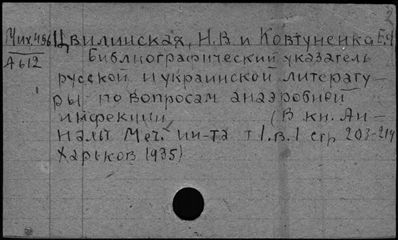 Мих.496 Цвилинская, Н.В и Ковтуненко Е.Я
А612 Библиографический указатель
русской и украинской литерату-
ры по вопросам анаэробной
инфекции (В кн. Ан-
налы Меч. ин-та т I. в. I стр 203-214
Харьков 1935)